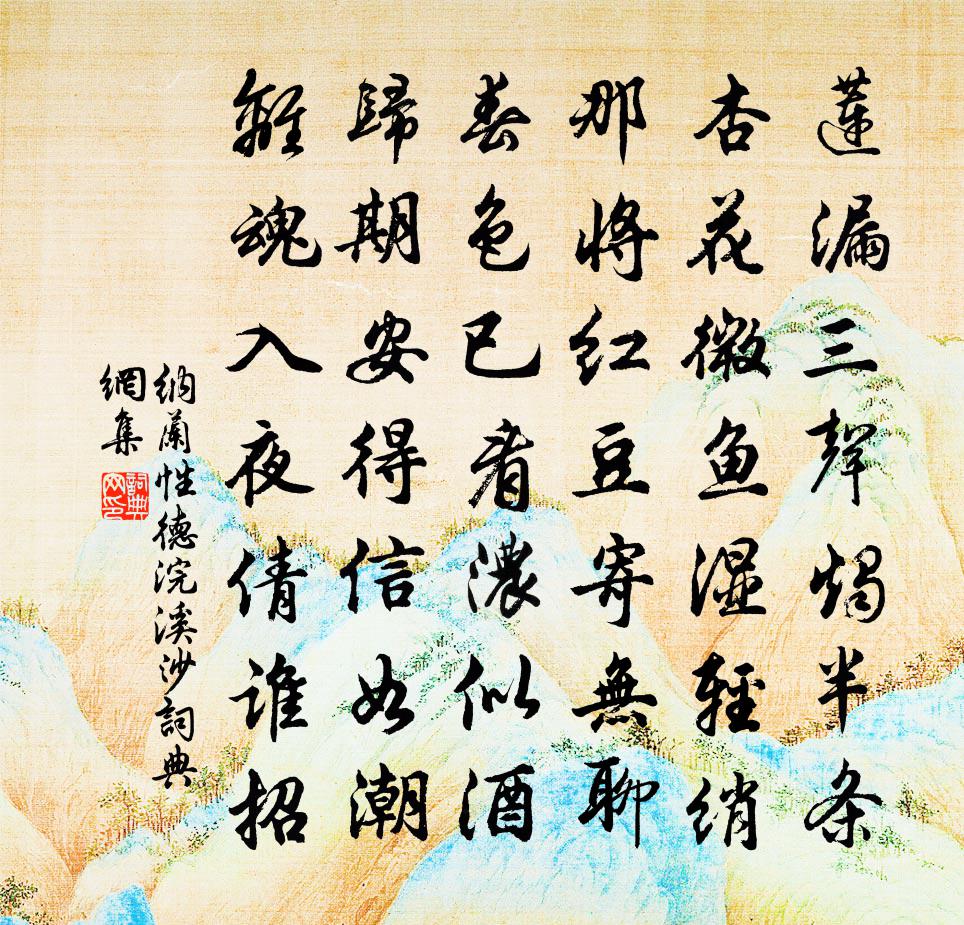 蓮漏三聲燭半条
杏花微鱼湿輕綃
那將红豆寄無聊
春色已看濃似酒
歸期安得信如潮
離魂入夜倩谁招
納蘭性德浣溪沙詞典
網集
詞典
网印